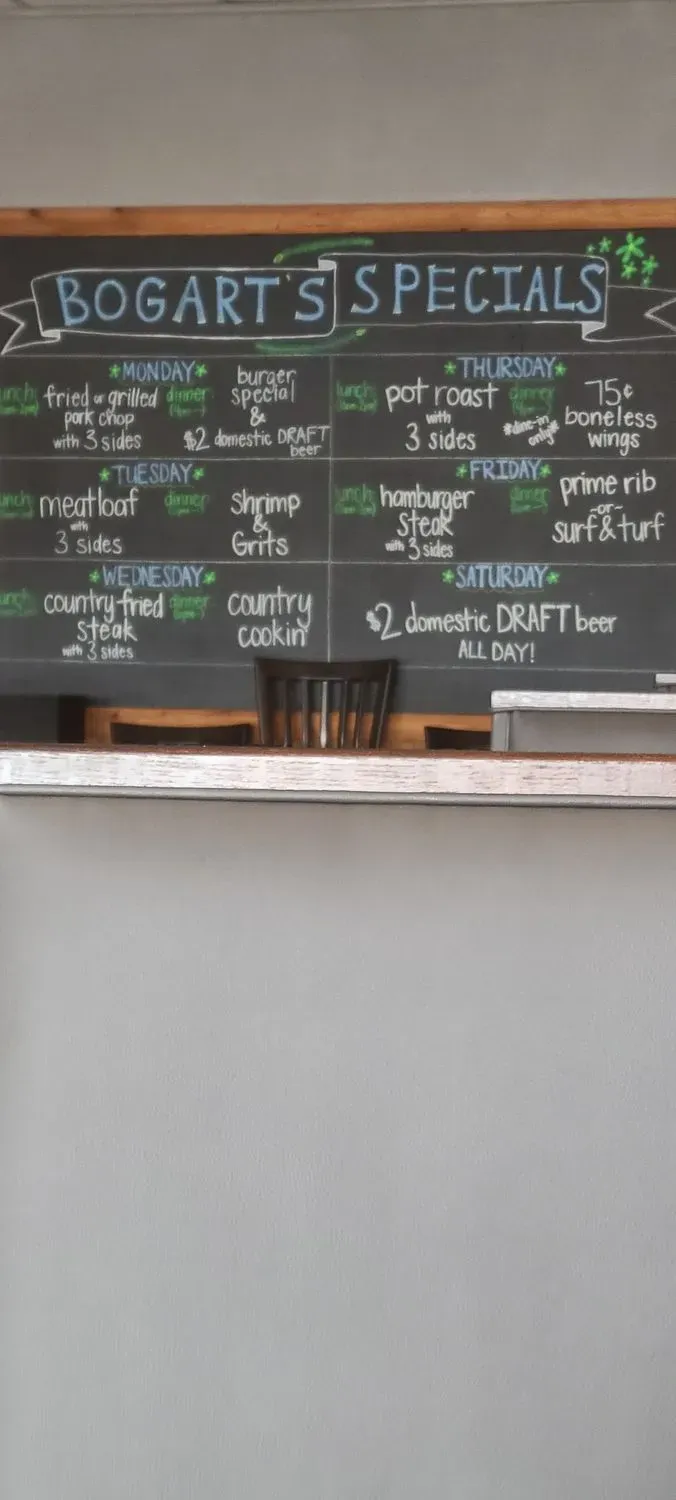 BOGART'S SPECIALS
*MONDAY*
lunch
fried or grilled
pork chop
with 3 sides
dinner
burger
special
&
$2 domestic DRAFT
beer
*TUESDAY*
lunch
meatloaf
with
3 sides
dinner
Shrimp
&
Grits
*WEDNESDAY*
lunch
country fried
steak
with 3 sides
dinner
country
cookin'
*THURSDAY*
lunch
pot roast
with
3 sides
dinner
*dine-in
only*
75¢
boneless
wings
*FRIDAY*
lunch
hamburger
steak
with 3 sides
dinner
prime rib
-or-
surf & turf
*SATURDAY*
$2 domestic DRAFT beer
ALL DAY!